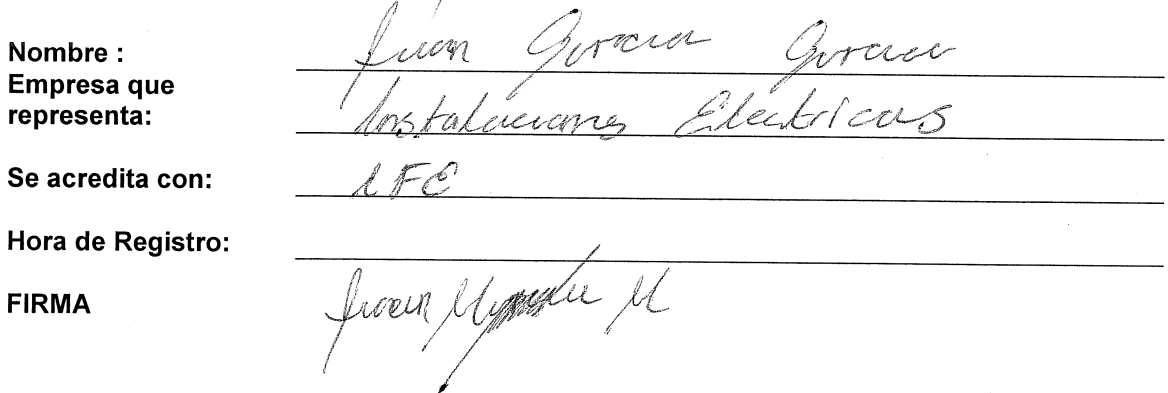 Nombre : Juan Garcia Garcia
Empresa que
representa: Instalaciones Electricas
Se acredita con: IFE
Hora de Registro:
FIRMA Juan